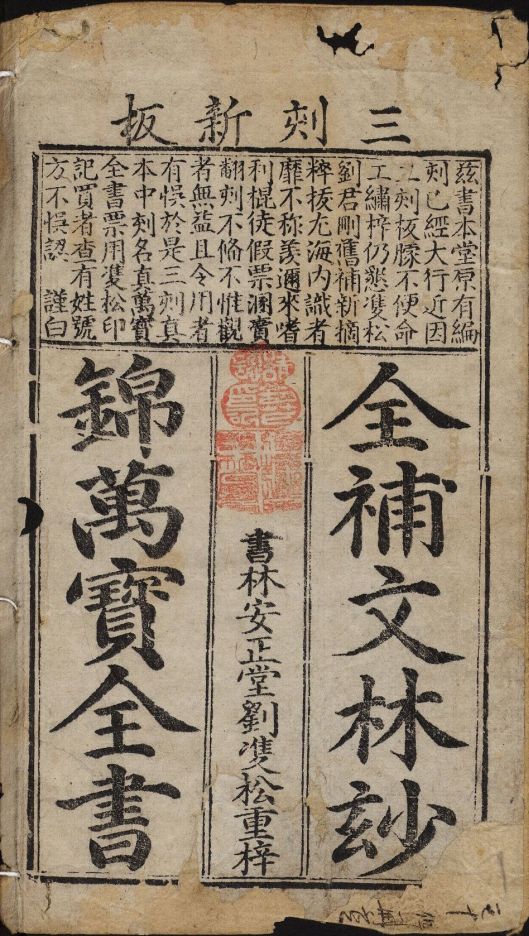 三刻新板
茲書本堂原有編
刻已經大行近因
二刻板朦不便命
工繡梓仍懇雙松
劉君剛舊補新摘
粹拔尤海内識者
靡不称羡邇來嗜
利棍徒假票溷賣
翻刻不脩不惟觀
者無益且令用者
有悞於是三刻真
本中刻名真萬寶
全書票用雙松印
記買者查有姓號
方不悞認　謹白
全補文林玅
錦萬寶全書
書林安正堂劉雙松重梓